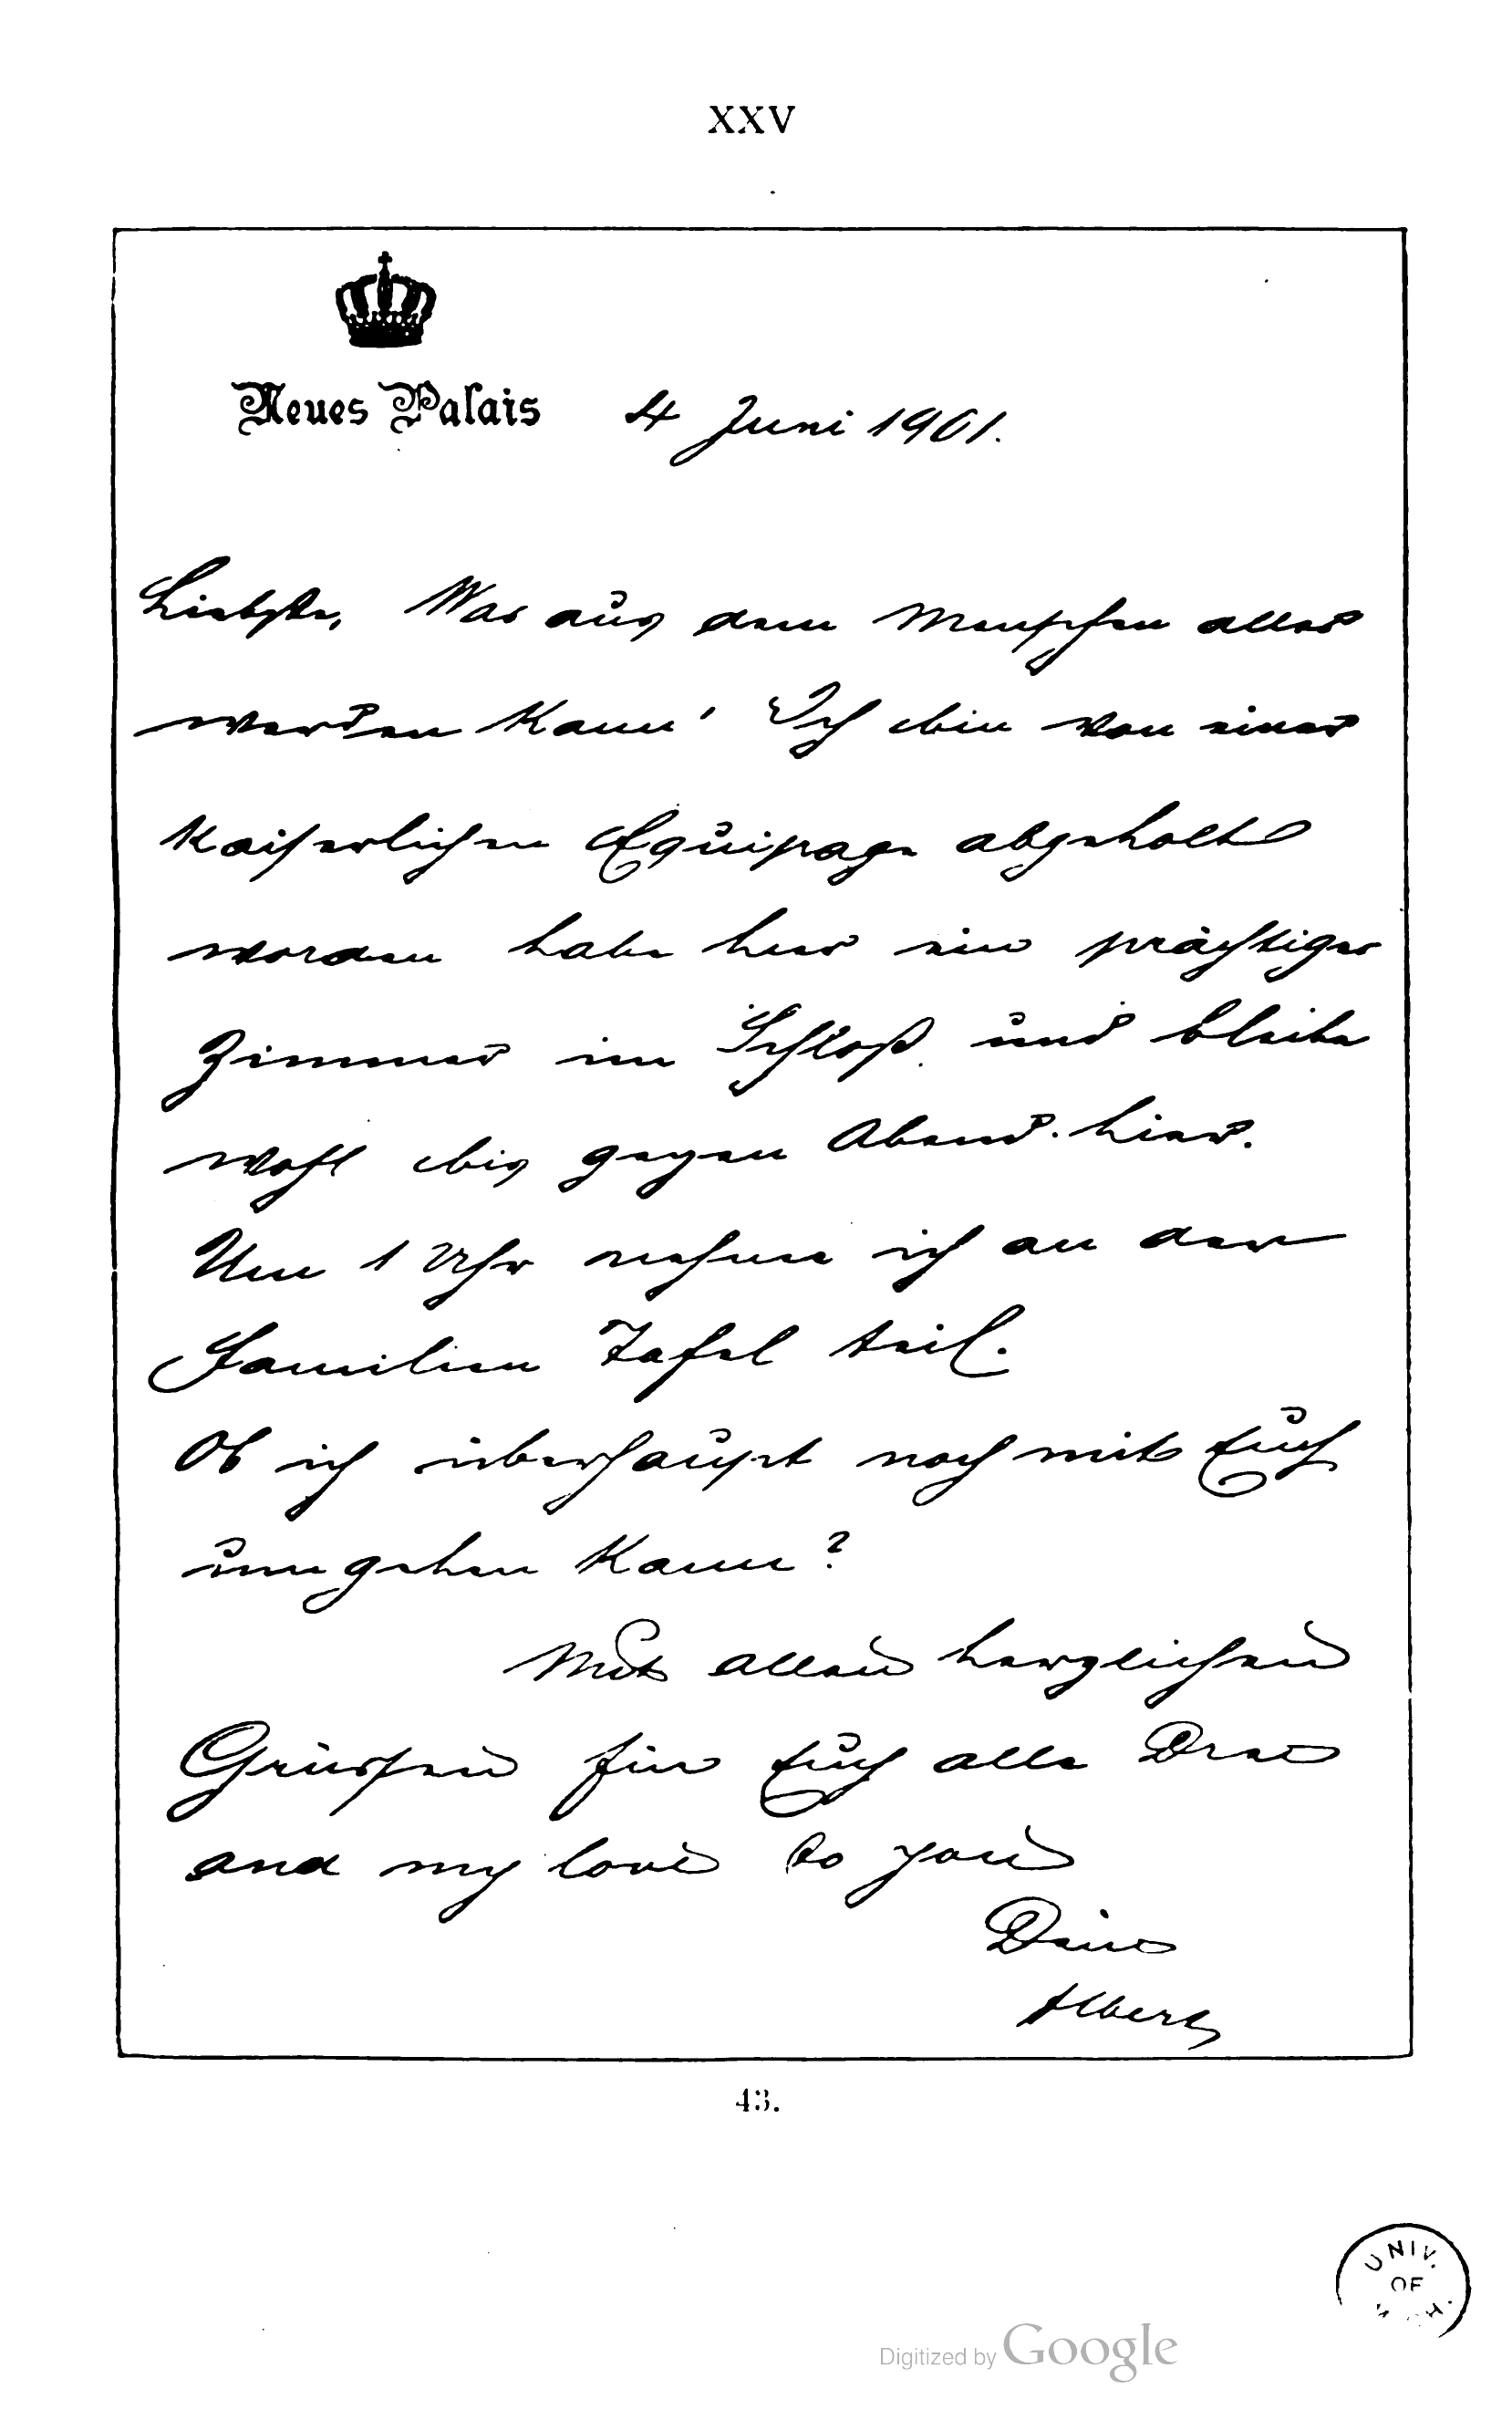 XXV
Neues Palais 4 Juni 1901.
Liebste, Was aus dem Menschen alles
werden kann! Ich bin von einer
Kaiserlichen Equipage abgeholt
worden habe hier ein prächtiges
Zimmer im Schloß und bleibe
wohl bis gegen Abend hier.
Um 1 Uhr nehme ich an der
Familien Tafel teil.
Ob ich überhaupt noch mit Euch
umgehen kann?
Mit allen herzlichen
Grüssen für Euch alle Drei
and my love to you
Dein
Albert
43.
UNIV.
OF
Digitized by Google